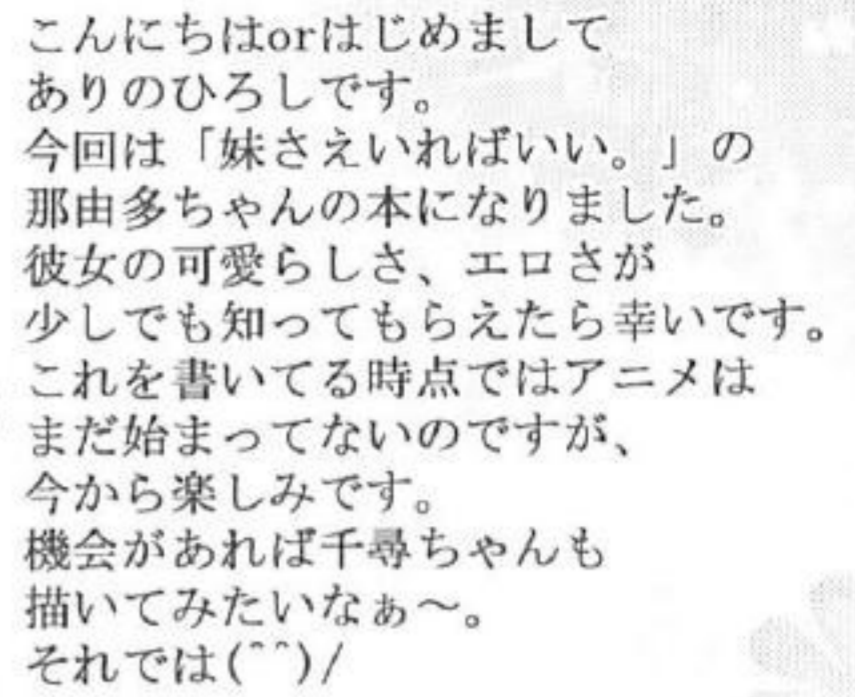 こんにちはorはじめまして
ありのひろしです。
今回は「妹さえいればいい。」の
那由多ちゃんの本になりました。
彼女の可愛らしさ、エロさが
少しでも知ってもらえたら幸いです。
これを書いてる時点ではアニメは
まだ始まってないのですが、
今から楽しみです。
機会があれば千尋ちゃんも
描いてみたいなぁ～。
それでは(^^)/